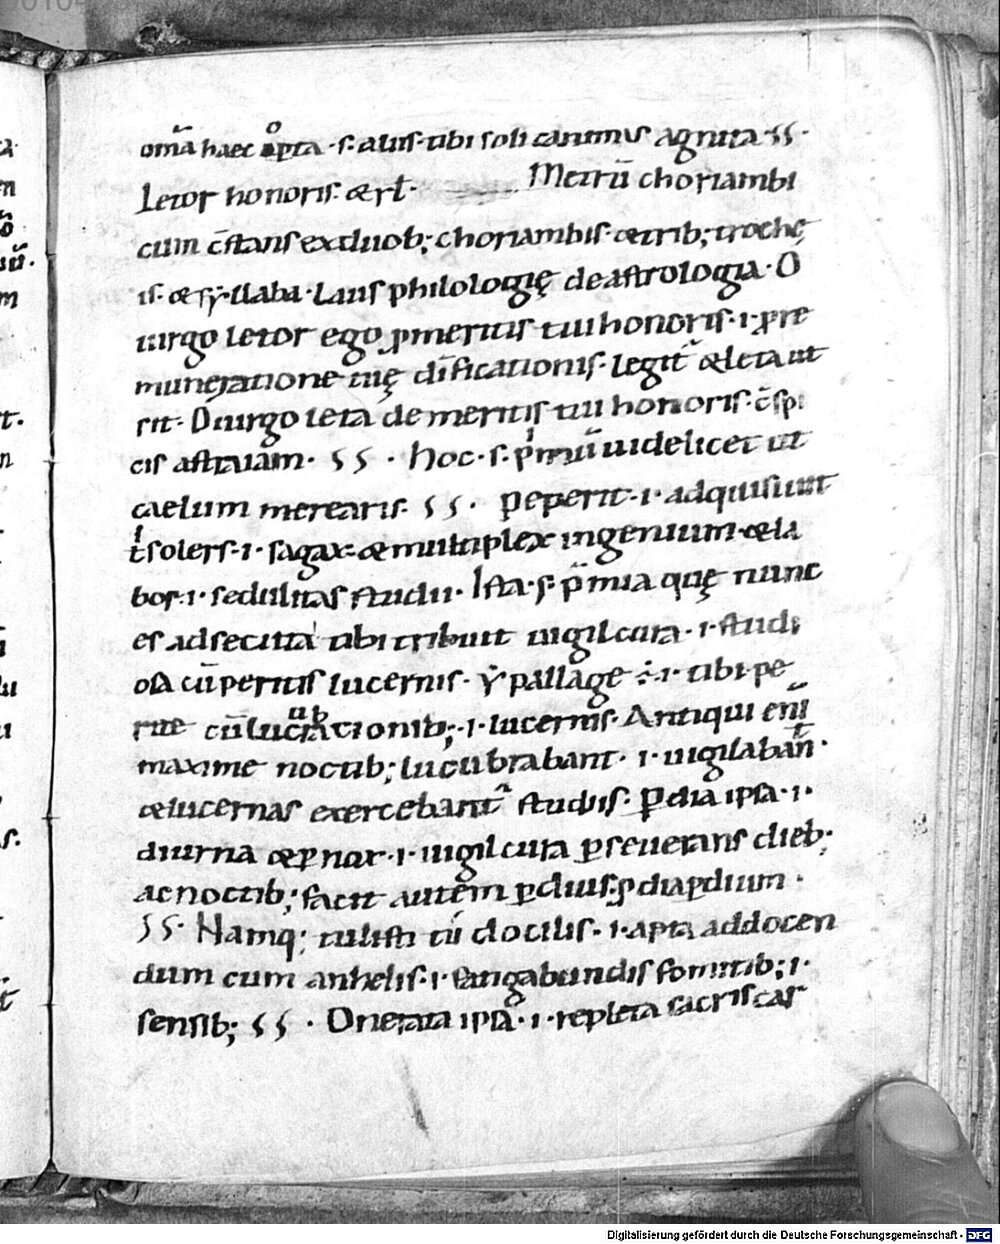 omīa haec opta ·s· aliis· tibi soli canimus agnita ·ss·
Letor honoris. & rł· Metrū choriambi
cum c̄stans ex duob; choriambis· & trib; troche
is· & sẏllaba· Laus philologię de astrologia· O
uirgo letor ego ꝓ meritis tui honoris· ·i· pre
muneratione tuę dīficationis· legit̄ & leta ut
sit· O uirgo leta de meritis tui honoris· c̄spi
cis astriuam· ss· hoc ·s· p̄miū uidelicet ut
caelum merearis· ss· peperit ·i· adquisiuit
ł solers ·i· sagax & multiplex ingenium & la
bor ·i· sedulitas studii· Ista ·s· p̄mia quę nunc
es adsecuta tibi tribuit uigil cura ·i· studi
osa cū peritis lucernis· ẏpallage ÷ ·i· tibi pe
rite cū lucubrationib; ·i· lucernis· Antiqui enī
maxime noctib; lucubrabant· ·i· uigilabant̄·
& lucernas exercebant studiis· ꝑ dia ipsa ·i·
diurna & ꝑnox ·i· uigil cura ꝑseuerans dieb;
ac noctib; facit autem ꝑdius· ꝑdia ꝑdium·
ss· Namq; tulisti tū docilis· ·i· apta ad docen
dum cum anhelis ·i· fatigabundis fomitib; ·i·
sensib; ss· Onerata ipsa· ·i· repleta sacris cas
Digitalisierung gefördert durch die Deutsche Forschungsgemeinschaft - DFG